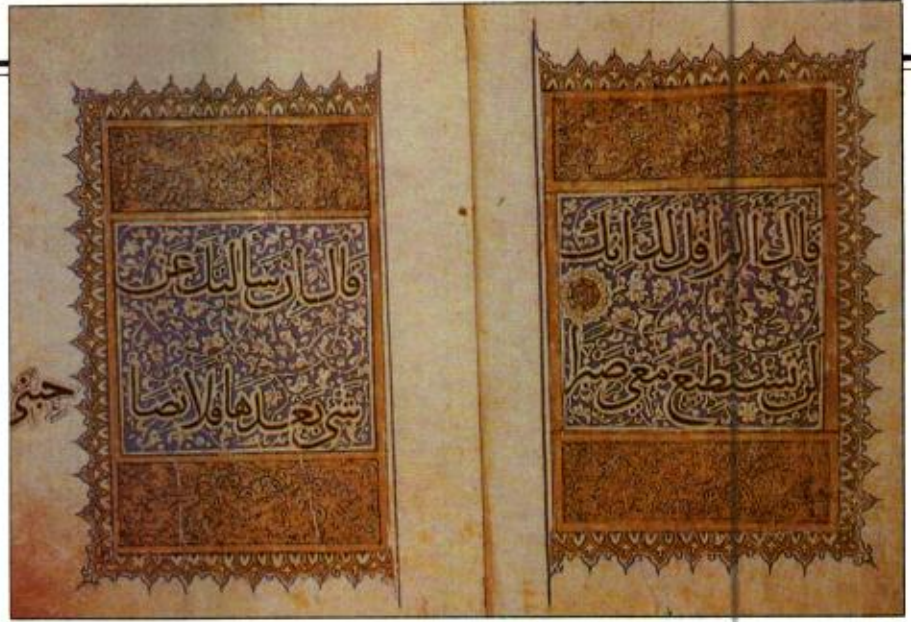 قال الم اقل لك انك
لن تستطيع معي صبرا
قال ان سالتك عن
شي بعدها فلا تصا
حبني